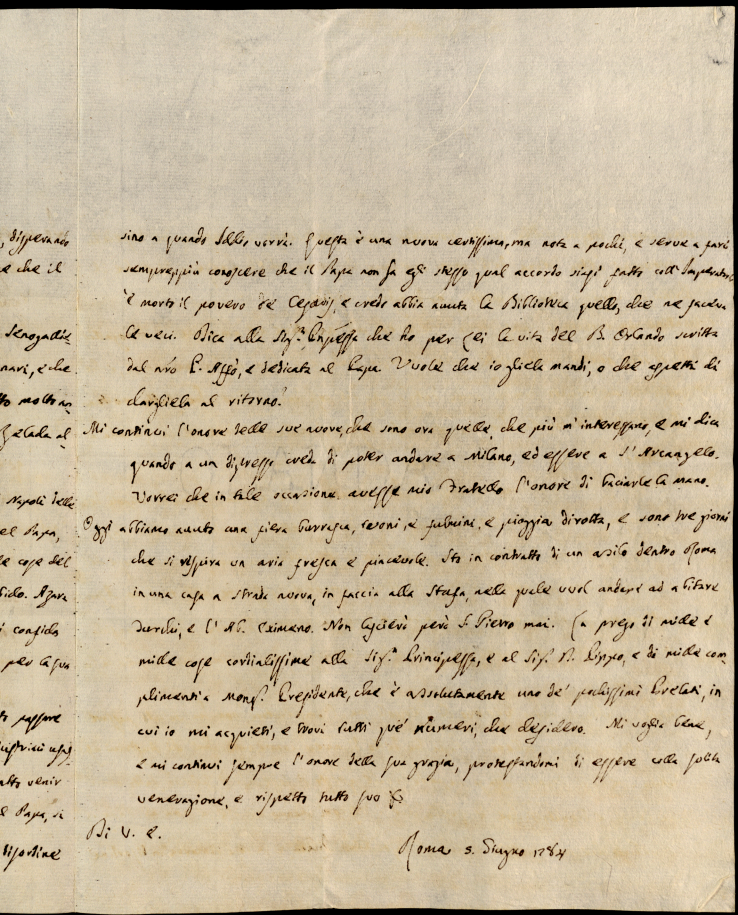 , disperando
e che il
Senogallia
nari, e che
to molto
Zelada al
Napoli della
el Papa,
le cose del
fido. Azara
i confida
per la sua
to passare
atto venir
e Papa, si
disordine
sino a quando Iddio vorrà. Questa è una nuova certissima, ma nota a pochi, e serve a farci
semprepiù conoscere che il Papa non sa egli stesso qual accordo siasi fatto coll'Imperatore
È morto il povero de , e credo abbia avuta la Biblioteca quello, che ne faceva
le veci. Dica alla Sigª. Pnpessa che ho per Lei la vita del B. Orlando scritta
dal nrõ P. Affò, e dedicata al Papa. Vuole che io gliela mandi, o che aspetti di
dargliela al ritorno?
Mi continui l'onore delle sue nuove, che sono ora quelle, che più m'interessano, e mi dica
quando a un dipresso creda di poter andare a Milano, ed essere a S. Arcangelo.
Vorrei che in tale occasione avesse mio Fratello l'onore di baciarle la mano.
Oggi abbiamo avuto una fiera burrasca, tuoni, e fulmini, e pioggia dirotta, e sono tre giorni
che si respira un aria fresca e piacevole. Sto in contratto di un asilo dentro Roma
in una casa a strada nuova, in faccia alla Stufa, nella quale vuol andare ad abitare
, e l'Ab. Ximeno. Non lascierò però S. Pietro mai. La prego di mille e
mille cose cordialissime alla Sigª. Principessa, e al Sigʳ. D. , e di mille com-
plimenti a Monsʳ. Presidente, che è assolutamente uno de' pochissimi Prelati, in
cui io mi acquieti, e trovi tutti que' numeri, che desidero. Mi voglia bene,
e mi continui sempre l'onore della sua grazia, protestandomi di essere colla solita
venerazione, e rispetto tutto suo
Di V. E.
Roma 5. Giugno 1784